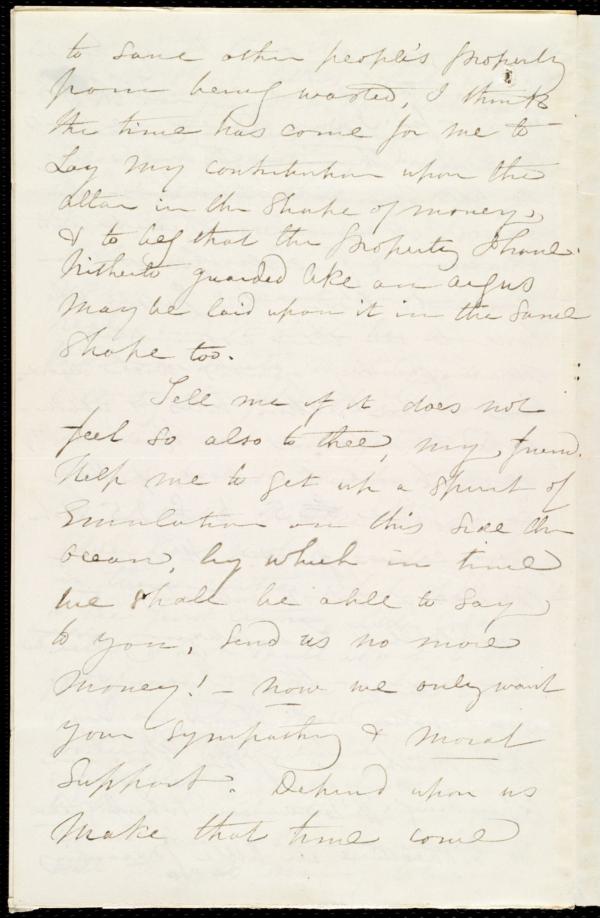 to save other people's property
from being wasted, I think
the time has come for me to
Lay my contribution upon the
altar in the shape of money,
& to beg that the property I have
hitherto guarded like an argus
may be laid upon it in the same
shape too.
Tell me if it does not
feel so also to thee, my friend.
Help me to get up a spirit of
Emulation on this side the
ocean, by which in time
we shall be able to say
to you, send us no more
money! – now we only want
your sympathy & moral
support. Depend upon us
make that time come